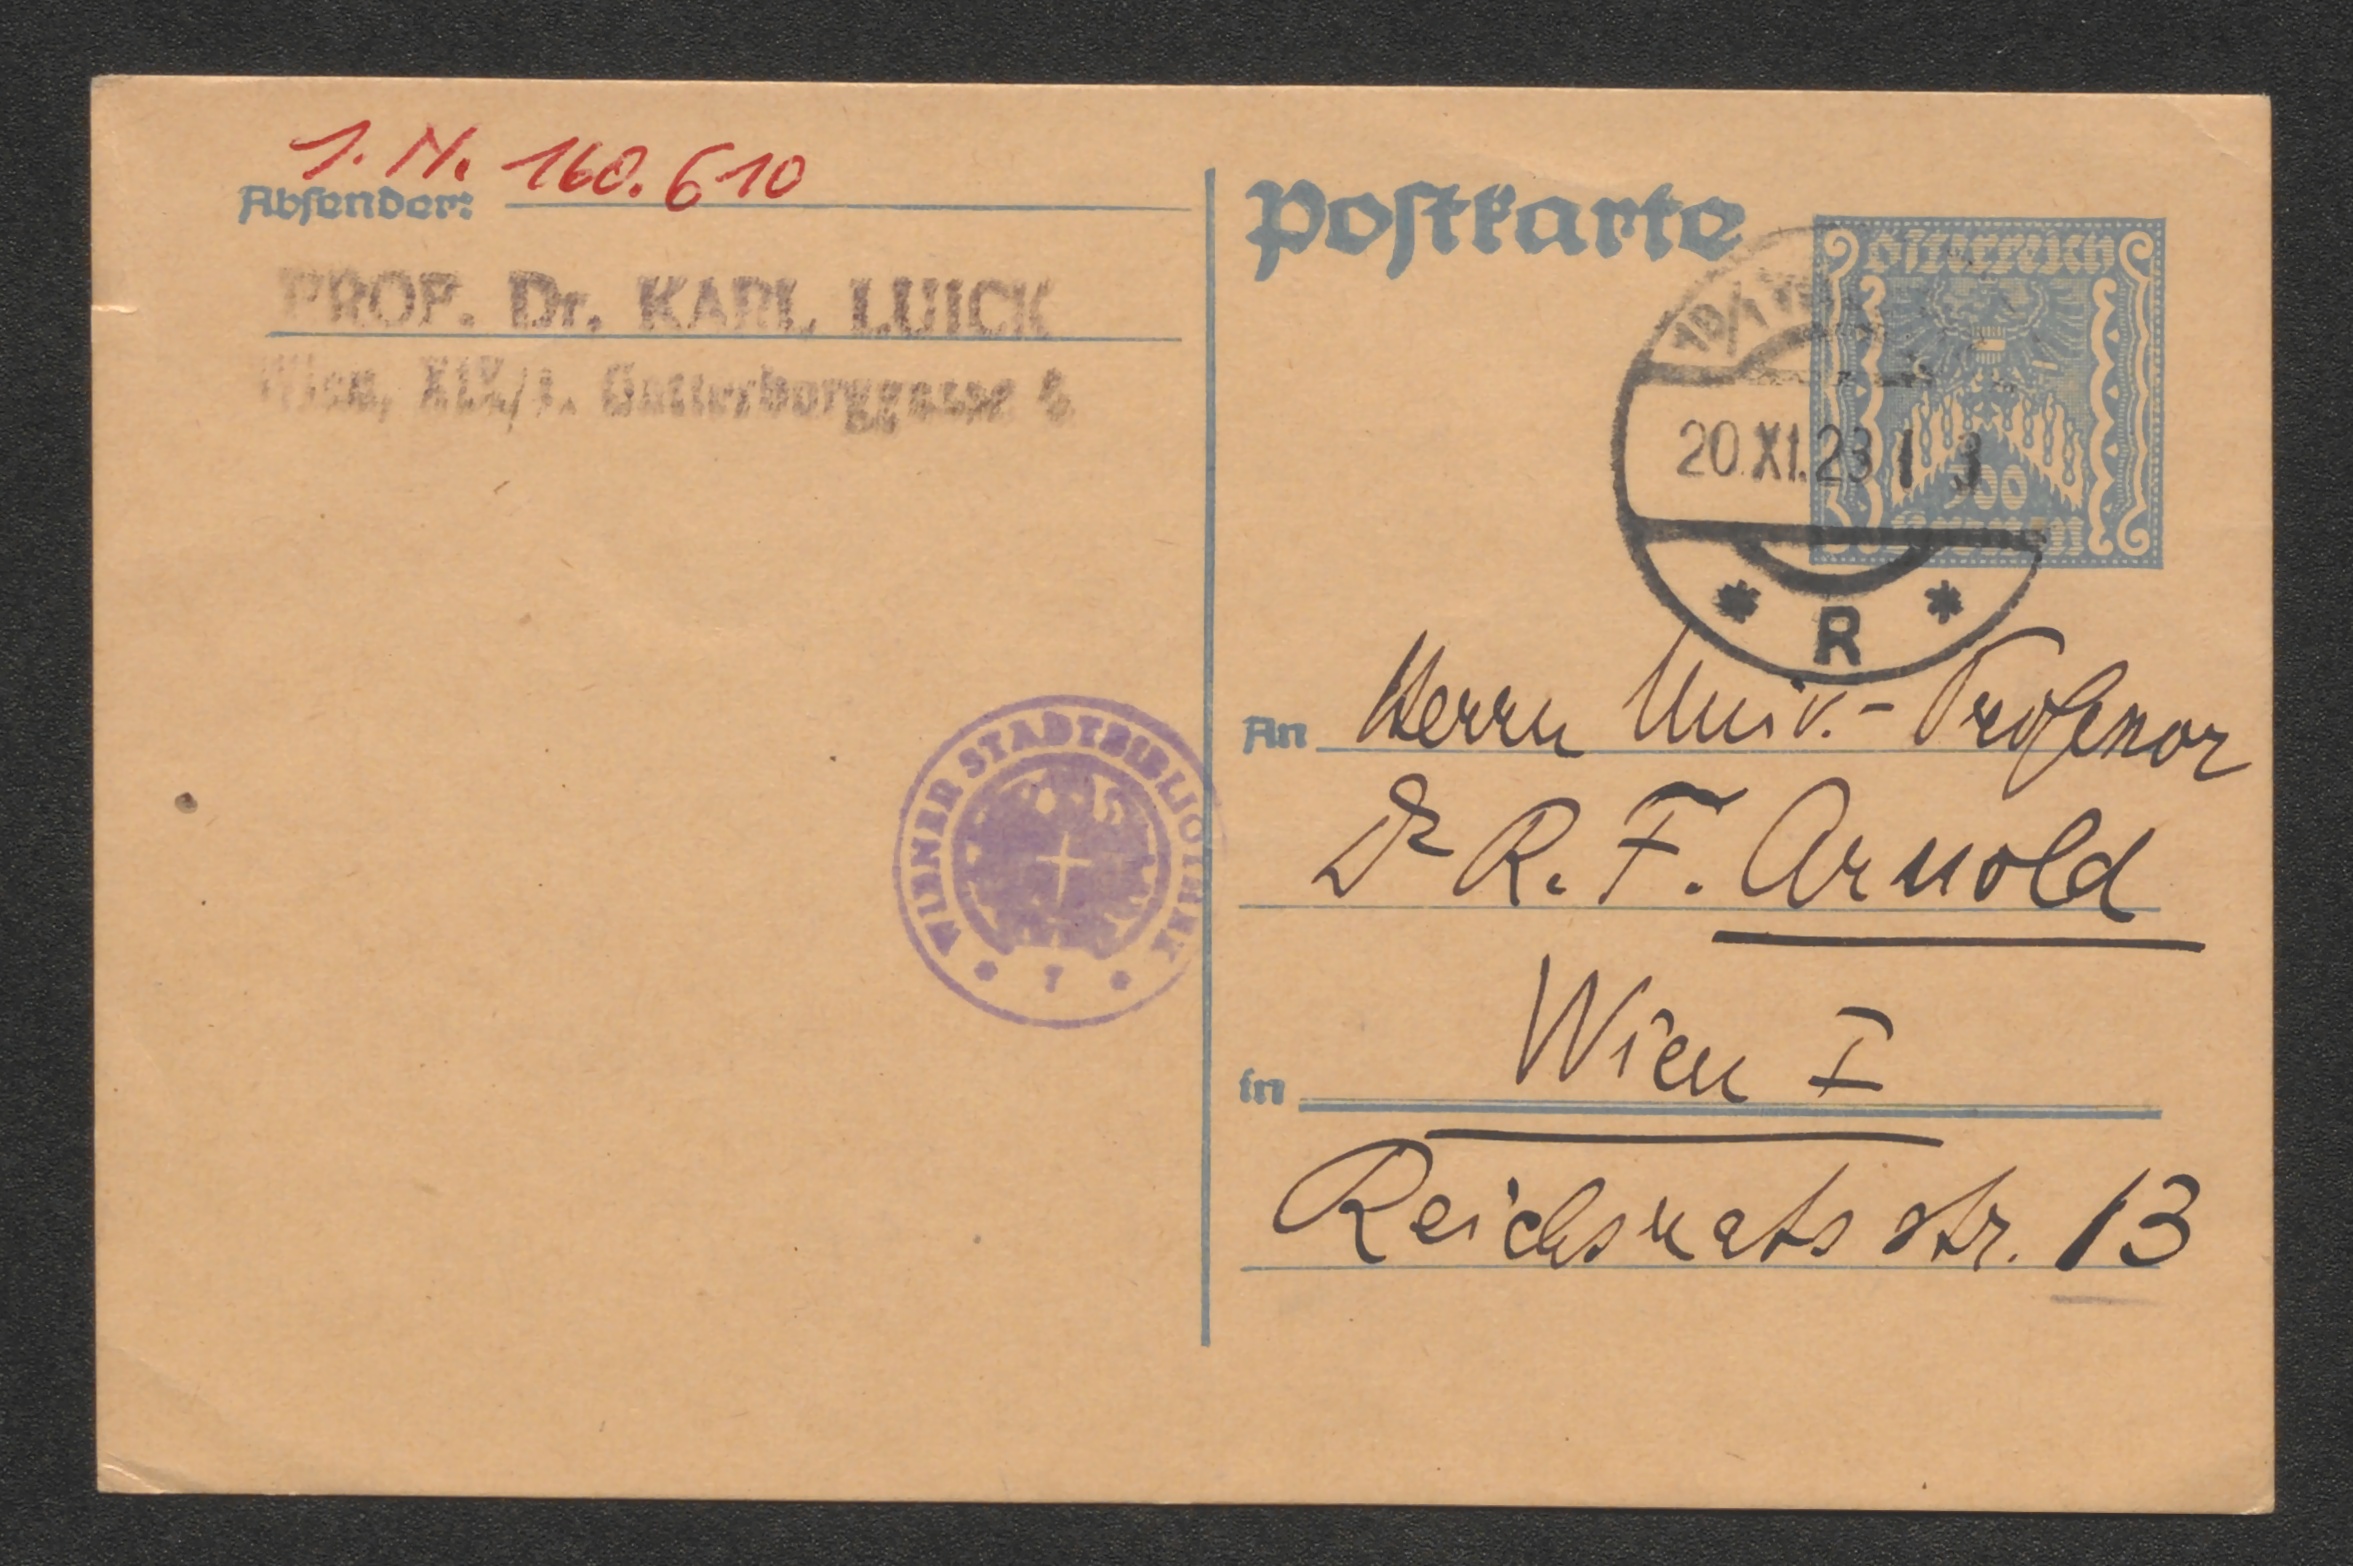 I. N. 160.610
Absender:
PROF. Dr. KARL LUICK
Wien, XIX/1. Gatterburggasse 6
WIENER STADTBIBLIOTHEK
* 7 *
Postkarte
Österreich
20.XI.23
300
Kronen
* R *
An Herrn Univ.-Professor
Dr R. F. Arnold
in Wien I
Reichsratsstr. 13